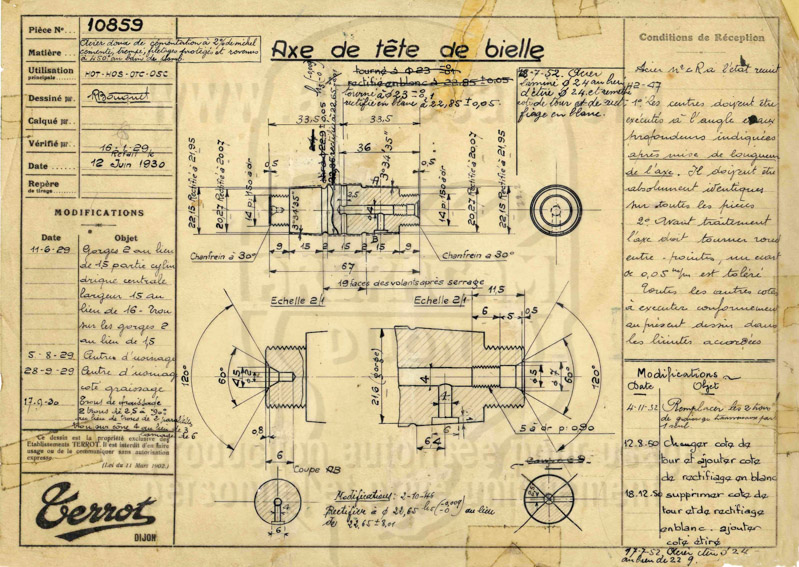 Pièce N° 10859
Matière
Acier doux de cémentation à 2% de nickel
cémenté, trempé, filetages protégés et revenus
à 450° au bain de plomb
Utilisation
principale
HOT-HOS-OTC-OSC
Dessiné par
Calqué par
Vérifié par
16-1-29
Refait le
Date 12 Juin 1930
Repère
de tirage
MODIFICATIONS
Date Objet
11-6-29 Gorges 2 au lieu
de 1,5 partie cylin
drique centrale
largeur 15 au
lieu de 16 - Trou
sur les gorges 2
au lieu de 1,5
5-8-29 Cadre d'usinage
28-9-29 Cadre d'usinage
coté graissage
17-9-30
Ce dessin est la propriété exclusive des
Etablissements TERROT. Il est interdit d'en faire
usage ou de la communiquer sans autorisation
expresse.
(Loi du 11 Mars 1902.)
Terrot
DIJON
Axe de tête de bielle
tourné à Ø 23
rectifié en blanc à 22,85 ±0,05
tourné à Ø 23
rectifié en blanc à 22,85 ±0,05.
18-7-52. Acier
laminé Ø 24 au lieu
d'étiré Ø 24 et remettre
cote de tour et de recti-
fiage en blanc.
33,5 33,5
36
22,15 Rectifié à 21,95
20,27 Rectifié à 20,07
14 p: 150 à dr
3°34'35"
3°34'35"
A
B
2,5
4
0,5
0,5
14 p: 150 à dr
20,27 Rectifié à 20,07
22,15 Rectifié à 21,95
9 15 2 15 2 15 9
Chanfrein à 30° Chanfrein à 30°
67
19 faces des volants après serrage
Echelle 2/1 Echelle 2/1
11,5
6 5
0,5
120°
60°
4,5
0,8
6
21,6 (gorge)
4
64
5
60°
120°
5 à dr p: 0,90
Coupe AB
4
6
Modifications 2-10-46
Rectifier à Ø 22,65 au lieu
de 22,65 ±0,01
Conditions de Réception
Acier N° cR à l'état recuit
42-47
1° Les centres doivent être
exécutés à l'angle et aux
profondeurs indiquées
après mise de longueur
de l'axe. Ils doivent être
absolument identiques
sur toutes les pièces
2° Avant traitement
l'axe doit tourner rond
entre-pointes, un écart
de 0,05 m/m est toléré
Toutes les autres cotes
à exécuter conformément
au présent dessin dans
les limites accordées
Modifications
Date Objet
4-11-32 Remplacer les 2 trous
de graissage transversaux par
1 seul
12.8.50 Changer cote de
tour et ajouter cote
de rectifiage en blanc
18.12.50 supprimer cote de
tour et de rectifiage
en blanc. ajouter
cote étiré
17-7-52, Acier étiré Ø 24
au lieu de 22,9.